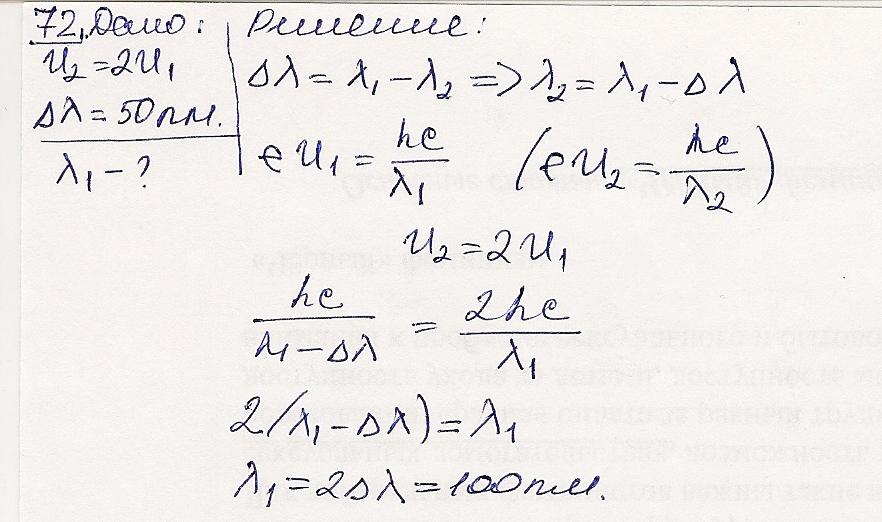 72. Дано:
U₂ = 2U₁
Δλ = 50 пм.
λ₁ – ?
Решение:
Δλ = λ₁ – λ₂ => λ₂ = λ₁ – Δλ
eU₁ = hc/λ₁ (eU₂ = hc/λ₂)
U₂ = 2U₁
hc/(λ₁ – Δλ) = 2hc/λ₁
2(λ₁ – Δλ) = λ₁
λ₁ = 2Δλ = 100 пм.